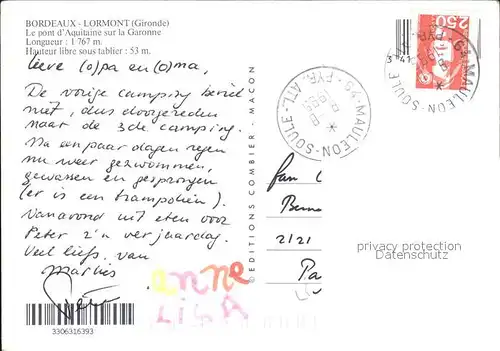 BORDEAUX - LORMONT (Gironde)
Le pont d'Aquitaine sur la Garonne
Longueur : 1 767 m.
Hauteur libre sous tablier : 53 m.
Lieve (o)pa en (o)ma,
De vorige camping beviel
niet, dus doorgereden
naar de 3de camping.
Na een paar dagen regen
nu weer gezwommen,
gewassen en gesprongen
(er is een trampolien).
Vanavond uit eten voor
Peter z'n verjaardag.
Veel liefs van
Marlies
Peter
anne
LISA
3306316393
© EDITIONS COMBIER - MACON
2,50
64 MAULEON-SOULE
PYR. ATL.
64 MAULEON-SOULE
PYR. ATL.
fam
2121
Pa
privacy protection
Datenschutz